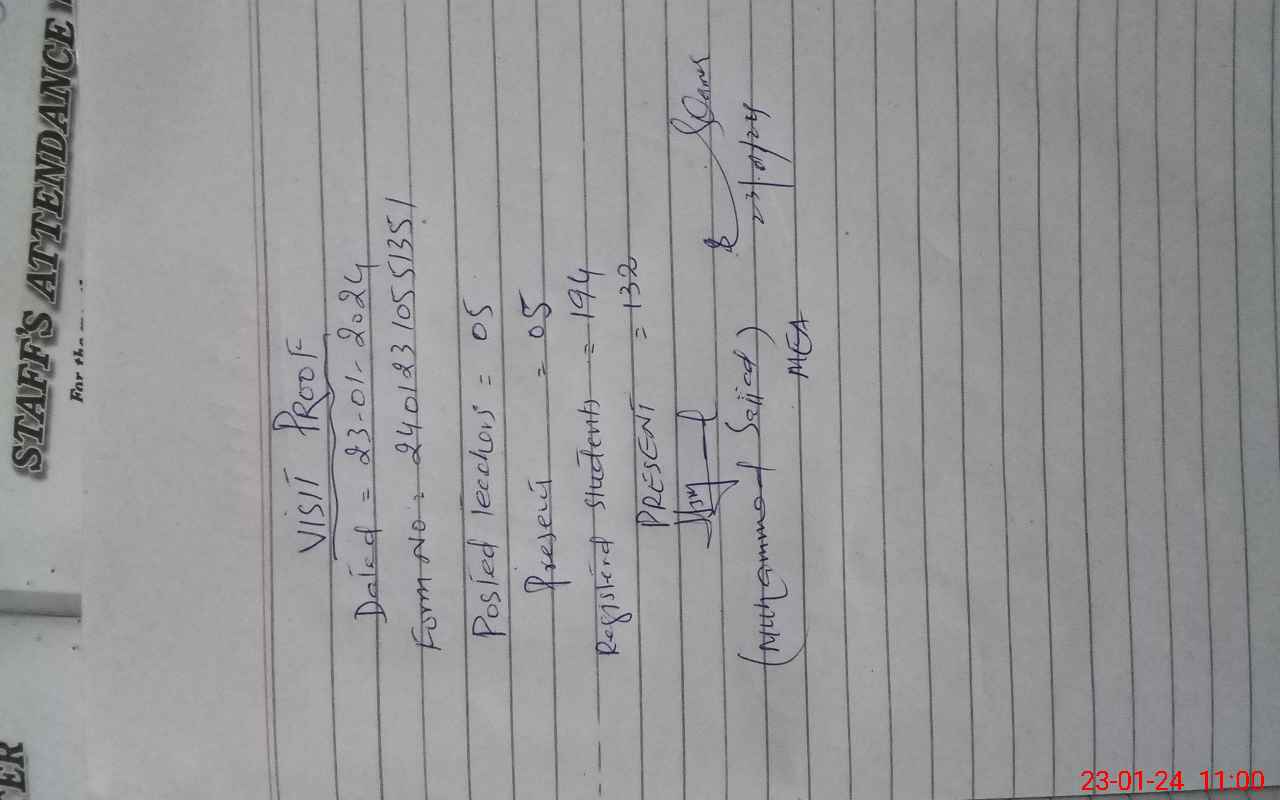 STAFF'S ATTENDANCE
For the
ER
VISIT PROOF
Dated = 23-01-2024
Form No = 24012310551351
Posted teachers = 05
Present = 05
Registerd students = 194
PRESENT = 132
23/01/24
(Muhammad Sajjad)
MEA
23-01-24 11:00